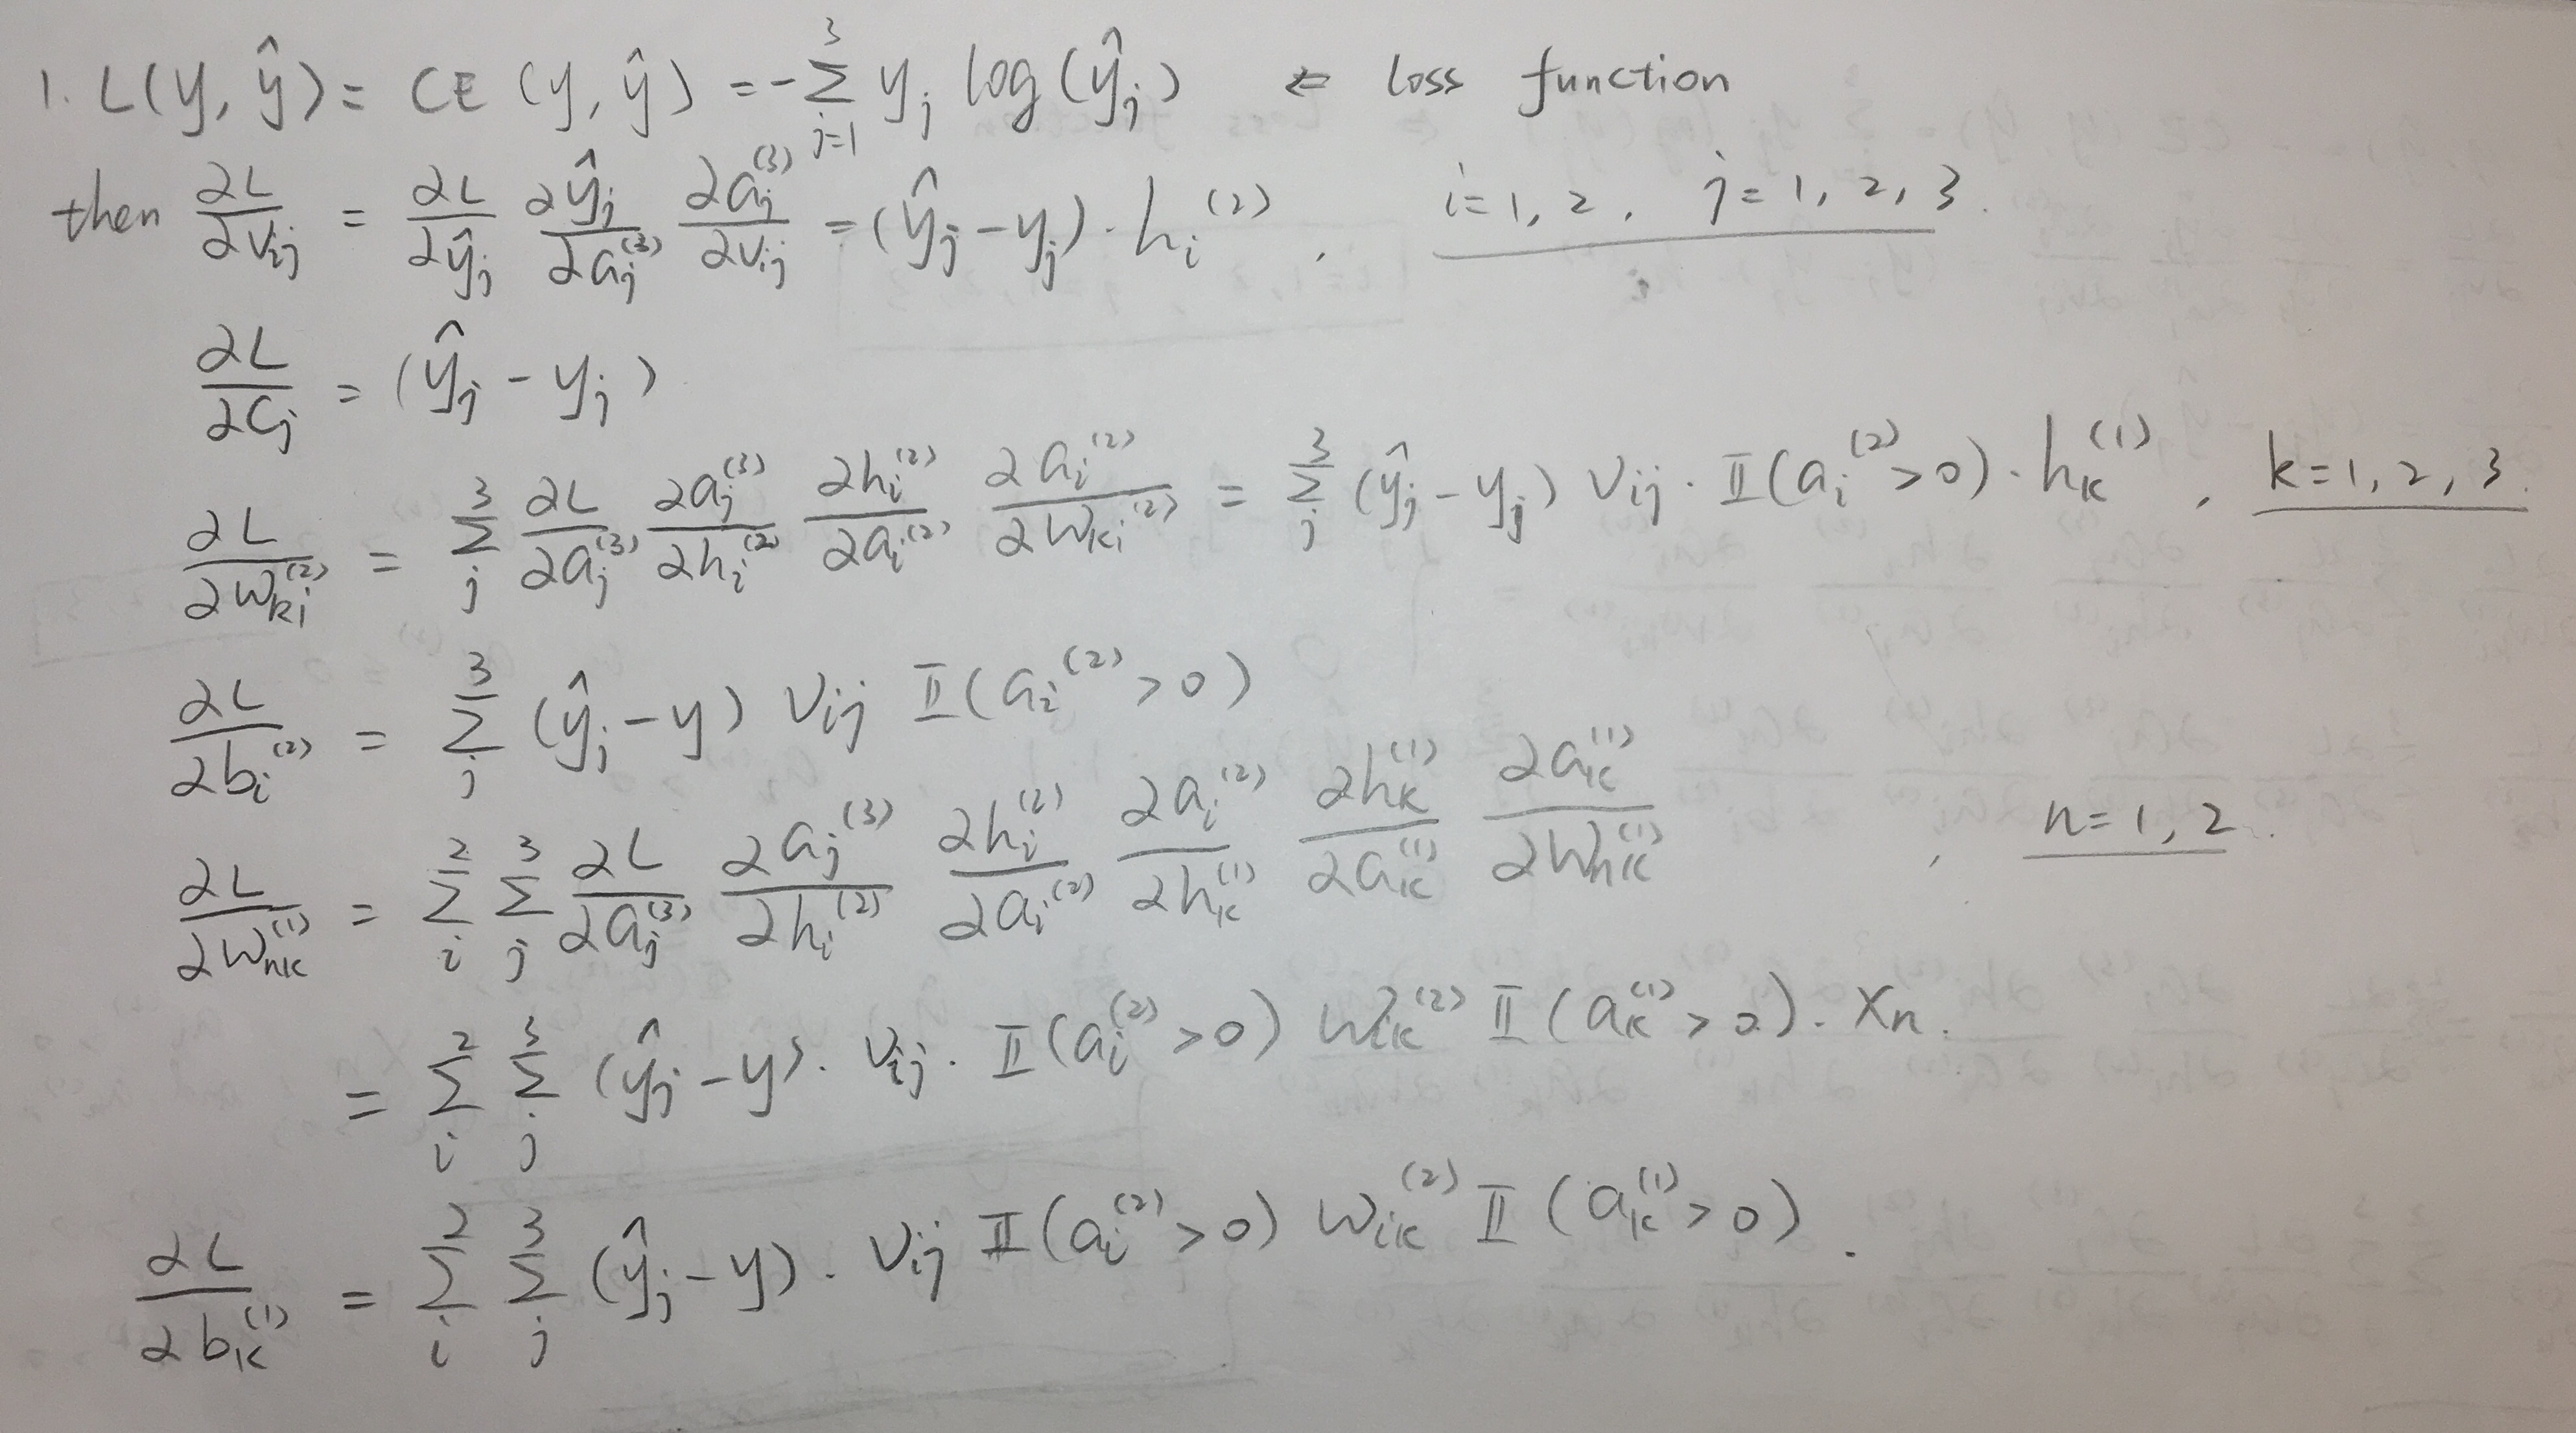 1. L(y, ŷ) = CE (y, ŷ) = -∑_{j=1}^{3} y_j log(ŷ_j) ⇐ loss function
then ∂L/∂v_{ij} = ∂L/∂ŷ_j ∂ŷ_j/∂a_j^{(3)} ∂a_j^{(3)}/∂v_{ij} = (ŷ_j - y_j) · h_i^{(2)}, i=1, 2, j=1, 2, 3.
∂L/∂c_j = (ŷ_j - y_j)
∂L/∂w_{ki}^{(2)} = ∑_j^3 ∂L/∂a_j^{(3)} ∂a_j^{(3)}/∂h_i^{(2)} ∂h_i^{(2)}/∂a_i^{(2)} ∂a_i^{(2)}/∂w_{ki}^{(2)} = ∑_j^3 (ŷ_j - y_j) v_{ij} · 𝕀(a_i^{(2)} > 0) · h_k^{(1)}, k=1, 2, 3.
∂L/∂b_i^{(2)} = ∑_j^3 (ŷ_j - y) v_{ij} 𝕀(a_i^{(2)} > 0)
∂L/∂w_{nk}^{(1)} = ∑_i^2 ∑_j^3 ∂L/∂a_j^{(3)} ∂a_j^{(3)}/∂h_i^{(2)} ∂h_i^{(2)}/∂a_i^{(2)} ∂a_i^{(2)}/∂h_k^{(1)} ∂h_k^{(1)}/∂a_k^{(1)} ∂a_k^{(1)}/∂w_{nk}^{(1)}, n=1, 2.
= ∑_i^2 ∑_j^3 (ŷ_j - y) · v_{ij} · 𝕀(a_i^{(2)} > 0) w_{ik}^{(2)} 𝕀(a_k^{(1)} > 0) · x_n.
∂L/∂b_k^{(1)} = ∑_i^2 ∑_j^3 (ŷ_j - y) · v_{ij} 𝕀(a_i^{(2)} > 0) w_{ik}^{(2)} 𝕀(a_k^{(1)} > 0).